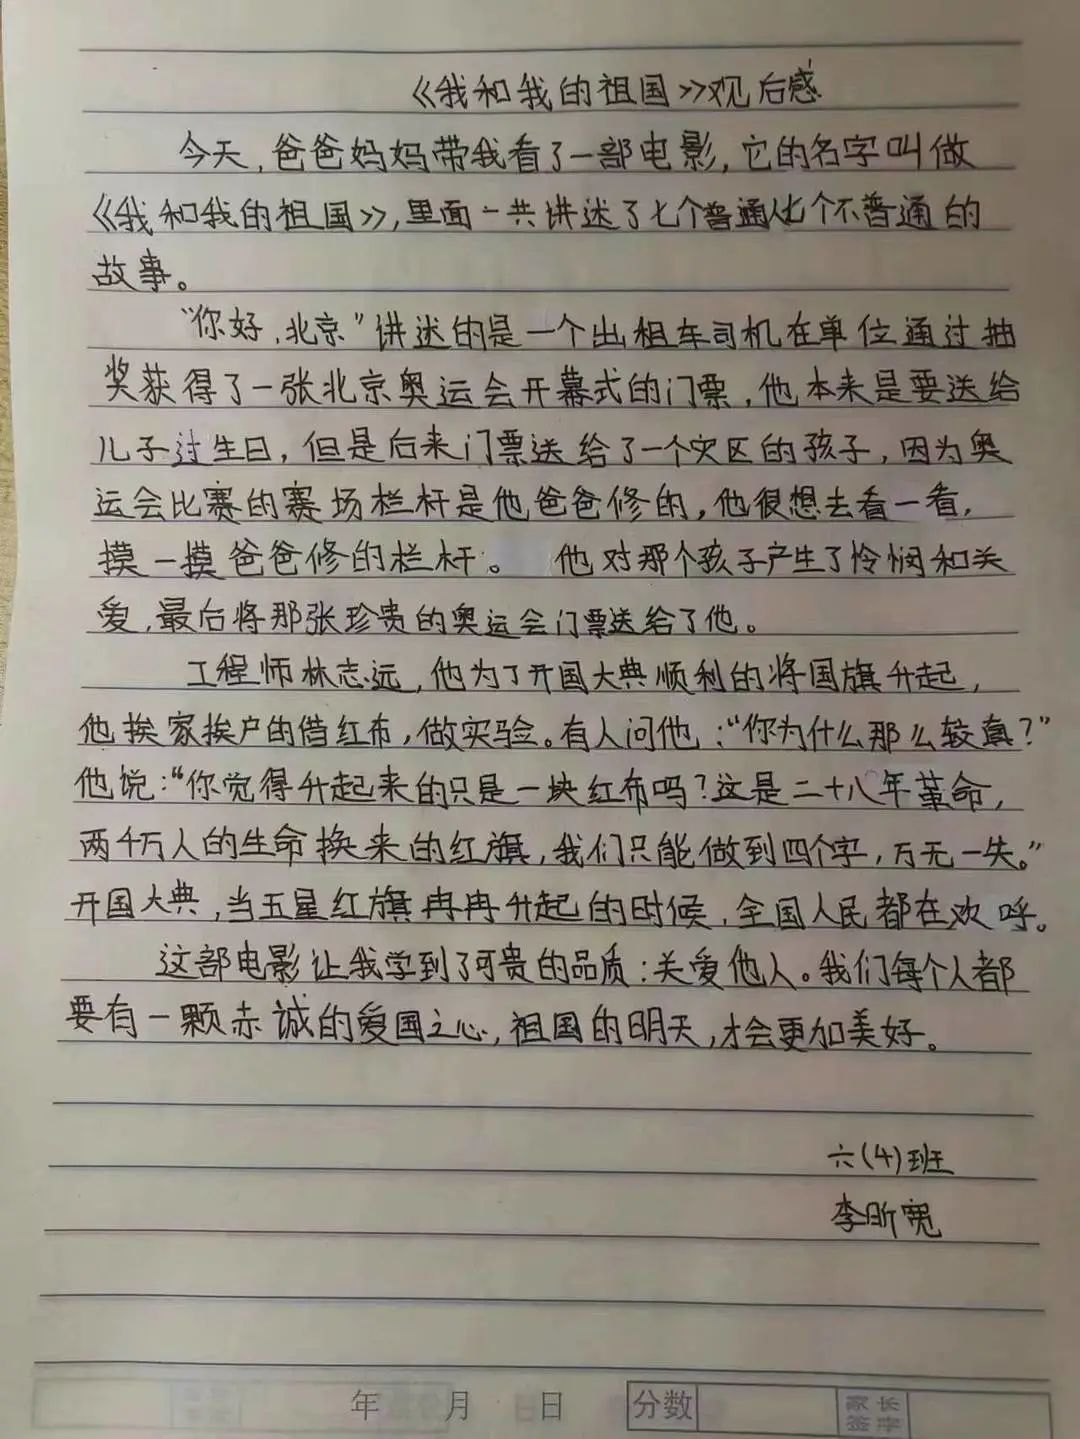 《我和我的祖国》观后感
今天，爸爸妈妈带我看了一部电影，它的名字叫做
《我和我的祖国》，里面一共讲述了七个普通人七个不普通的
故事。
“你好，北京”讲述的是一个出租车司机在单位通过抽
奖获得了一张北京奥运会开幕式的门票，他本来是要送给
儿子过生日，但是后来门票送给了一个灾区的孩子，因为奥
运会比赛的赛场栏杆是他爸爸修的，他很想去看一看，
摸一摸爸爸修的栏杆。 他对那个孩子产生了怜悯和关
爱，最后将那张珍贵的奥运会门票送给了他。
工程师林志远，他为了开国大典顺利的将国旗升起，
他挨家挨户的借红布，做实验。有人问他：“你为什么那么较真？”
他说：“你觉得升起来的只是一块红布吗？这是二十八年革命，
两千万人的生命换来的红旗，我们只能做到四个字，万无一失。”
开国大典，当五星红旗冉冉升起的时候，全国人民都在欢呼。
这部电影让我学到了可贵的品质：关爱他人。我们每个人都
要有一颗赤诚的爱国之心，祖国的明天，才会更加美好。
六(4)班
李昕宽
年 月 日 分数